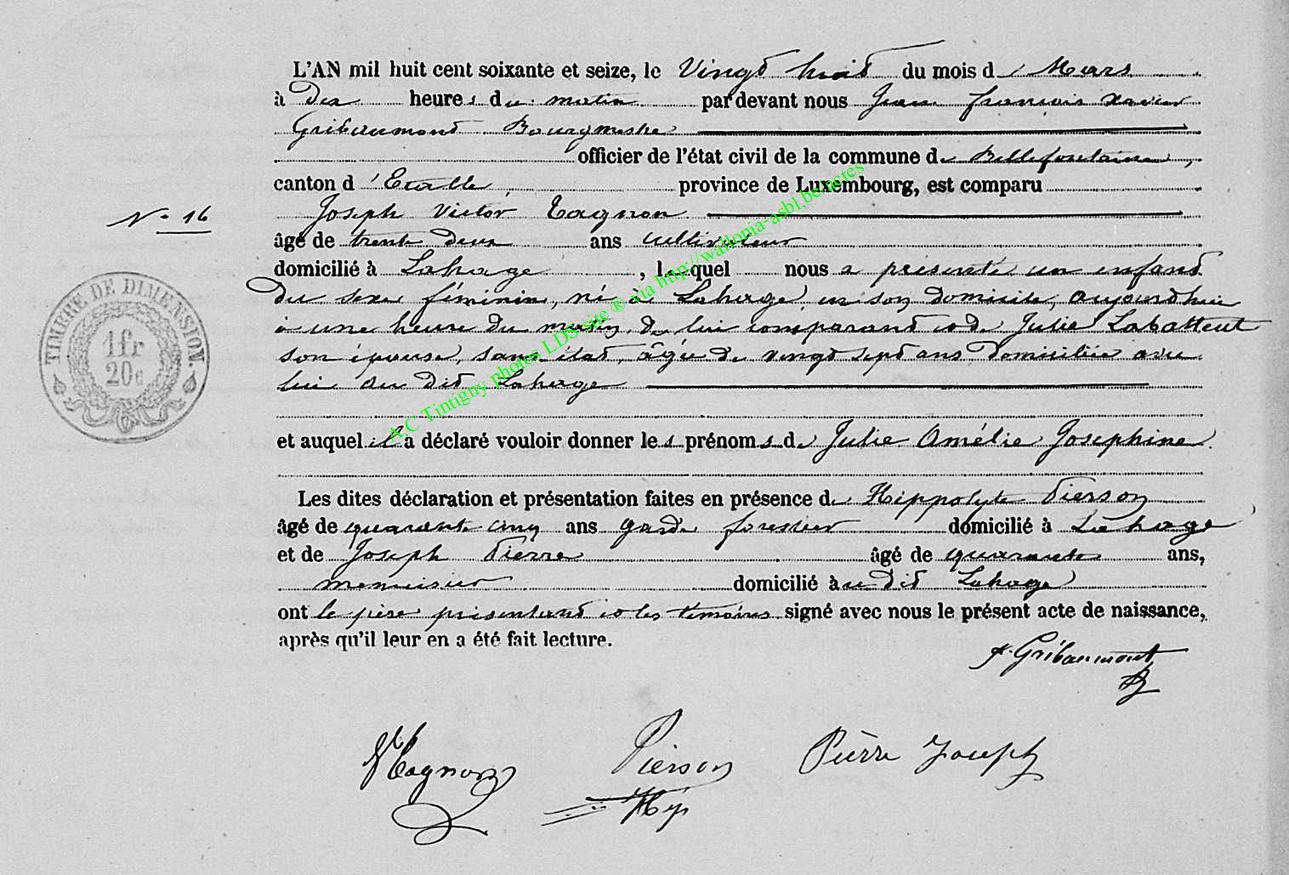 L'AN mil huit cent soixante et seize, le Vingt huit du mois de Mars
à dix heures du matin par devant nous Jean françois xavier
Gribaumont Bourgmestre
officier de l'état civil de la commune de Bellefontaine,
canton d'Etalle, province de Luxembourg, est comparu
N° 16
Joseph Victor Tagnon
âgé de trente deux ans cultivateur
domicilié à Lahage, lequel nous a présenté un enfant
du sexe féminin, né à Lahage, en son domicile, aujourd'hui
à une heure du matin, de lui comparant et de Julie Labatteut
son épouse, sans état, âgée de vingt sept ans domiciliée avec
lui au dit Lahage
TIMBRE DE DIMENSION.
1fr
20c
et auquel il a déclaré vouloir donner les prénoms de Julie Amélie Josephine.
Les dites déclaration et présentation faites en présence de Hippolyte Pierson
âgé de quarante cinq ans garde forestier domicilié à Lahage
et de Joseph Pierre âgé de quarante ans,
menuisier domicilié au dit Lahage
ont le père présentant et les témoins signé avec nous le présent acte de naissance,
après qu'il leur en a été fait lecture.
Gribaumont
Tagnon Pierson Pièrre Joseph
Hyp
A.C Tintigny photos LDS site ® via http://wallonia-asbl.be/actes